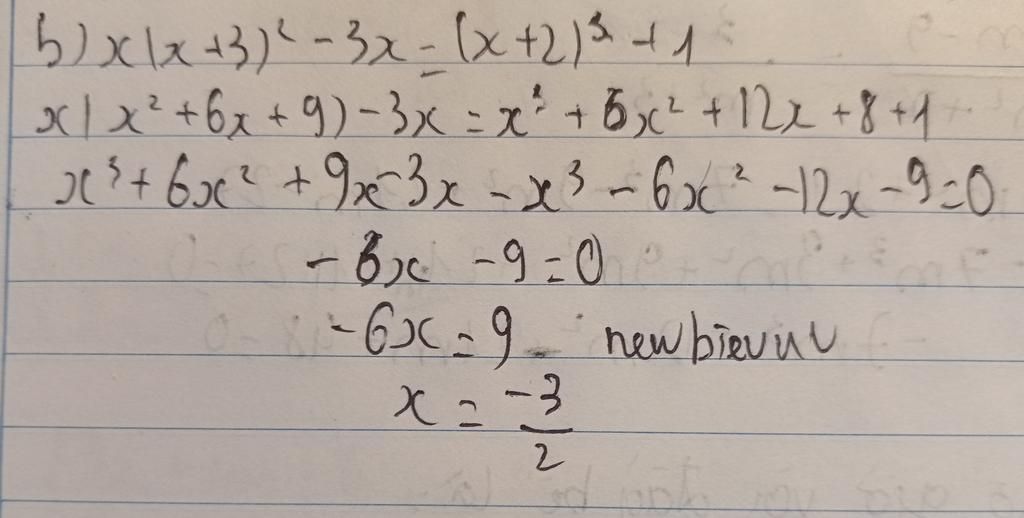 b) x(x+3)² - 3x = (x+2)³ + 1
x(x² + 6x + 9) - 3x = x³ + 6x² + 12x + 8 + 1
x³ + 6x² + 9x - 3x - x³ - 6x² - 12x - 9 = 0
- 6x - 9 = 0
- 6x = 9 newbievuv
x = -3/2